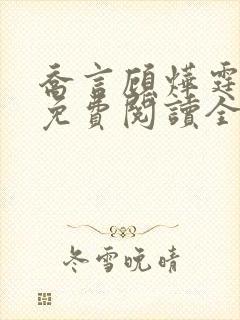 喬言顧燁霆
免費閱讀全
冬雪晚晴